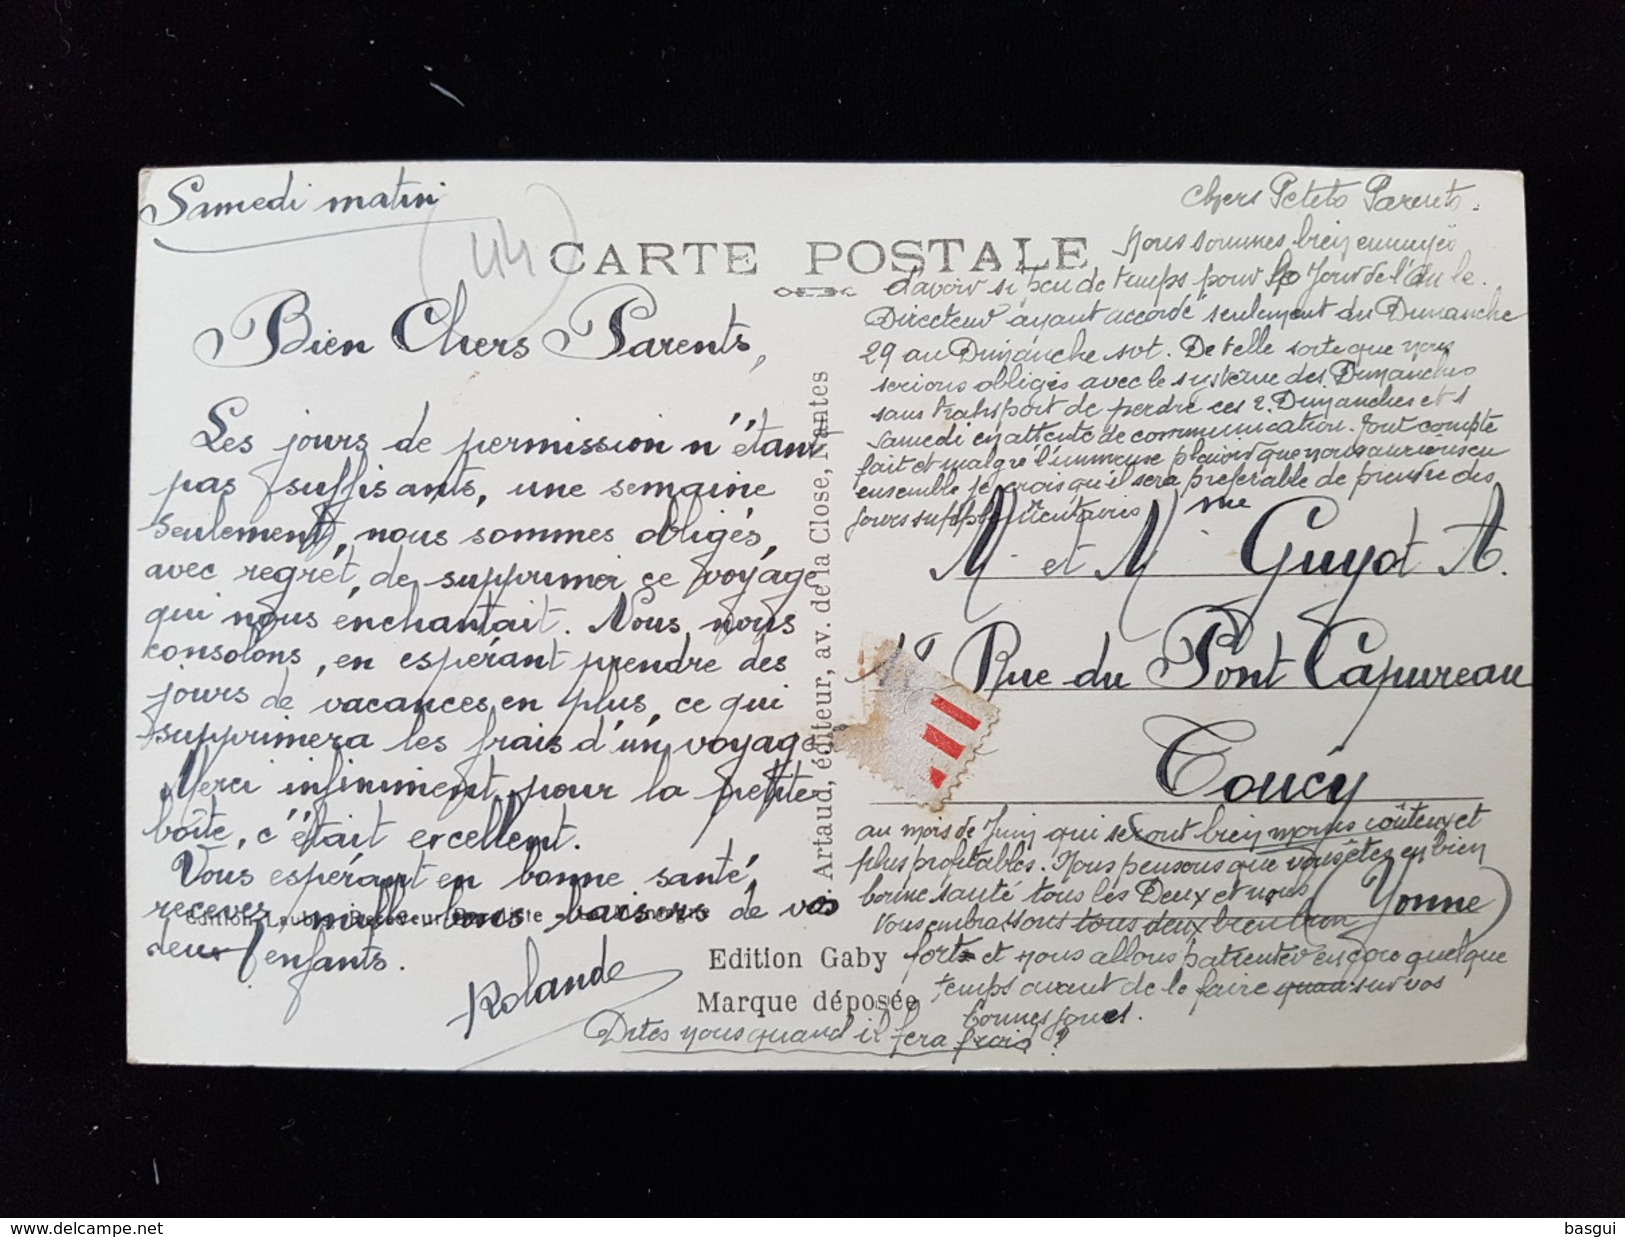 Samedi matin
(44)
CARTE POSTALE
Bien Chers Parents,
Les jours de permission n'étant
pas suffisants, une semaine
seulement, nous sommes obligés,
avec regret, de supprimer ce voyage
qui nous enchantait. Nous nous
consolons, en espérant prendre des
jours de vacances en plus, ce qui
supprimera les frais d'un voyage
Merci infiniment pour la petite
boîte, c'était excellent.
Vous espérant en bonne santé,
recevez mille bons baisers de vos
deux enfants.
Rolande
Edition
Artaud, éditeur, av. de la Close, Nantes
Edition Gaby
Marque déposée
Chers Petits Parents.
Nous sommes bien ennuyés
d'avoir si peu de temps pour le Jour de l'An le
Directeur ayant accordé seulement du Dimanche
29 au Dimanche svt. De telle sorte que nous
serions obligés avec le système des Dimanches
sans transport de perdre ces 2 Dimanches et 1
samedi en attente de communication. Tout compte
fait et malgré l'immense plaisir que nous aurions eu
ensemble je crois qu'il sera préférable de prendre des
jours supplémentaires
M. et Mme Guyot A.
Rue du Pont Capureau
Toucy
au mois de Juin qui seront bien moins coûteux et
plus profitables. Nous pensons que vous êtes en bien
bonne santé tous les Deux et nous
(Yonne)
vous embrassons tous deux bien bien
fort et nous allons patienter encore quelque
temps avant de le faire sur vos
bonnes joues.
Dites nous quand il fera frais ?
delcampe.net
basgui